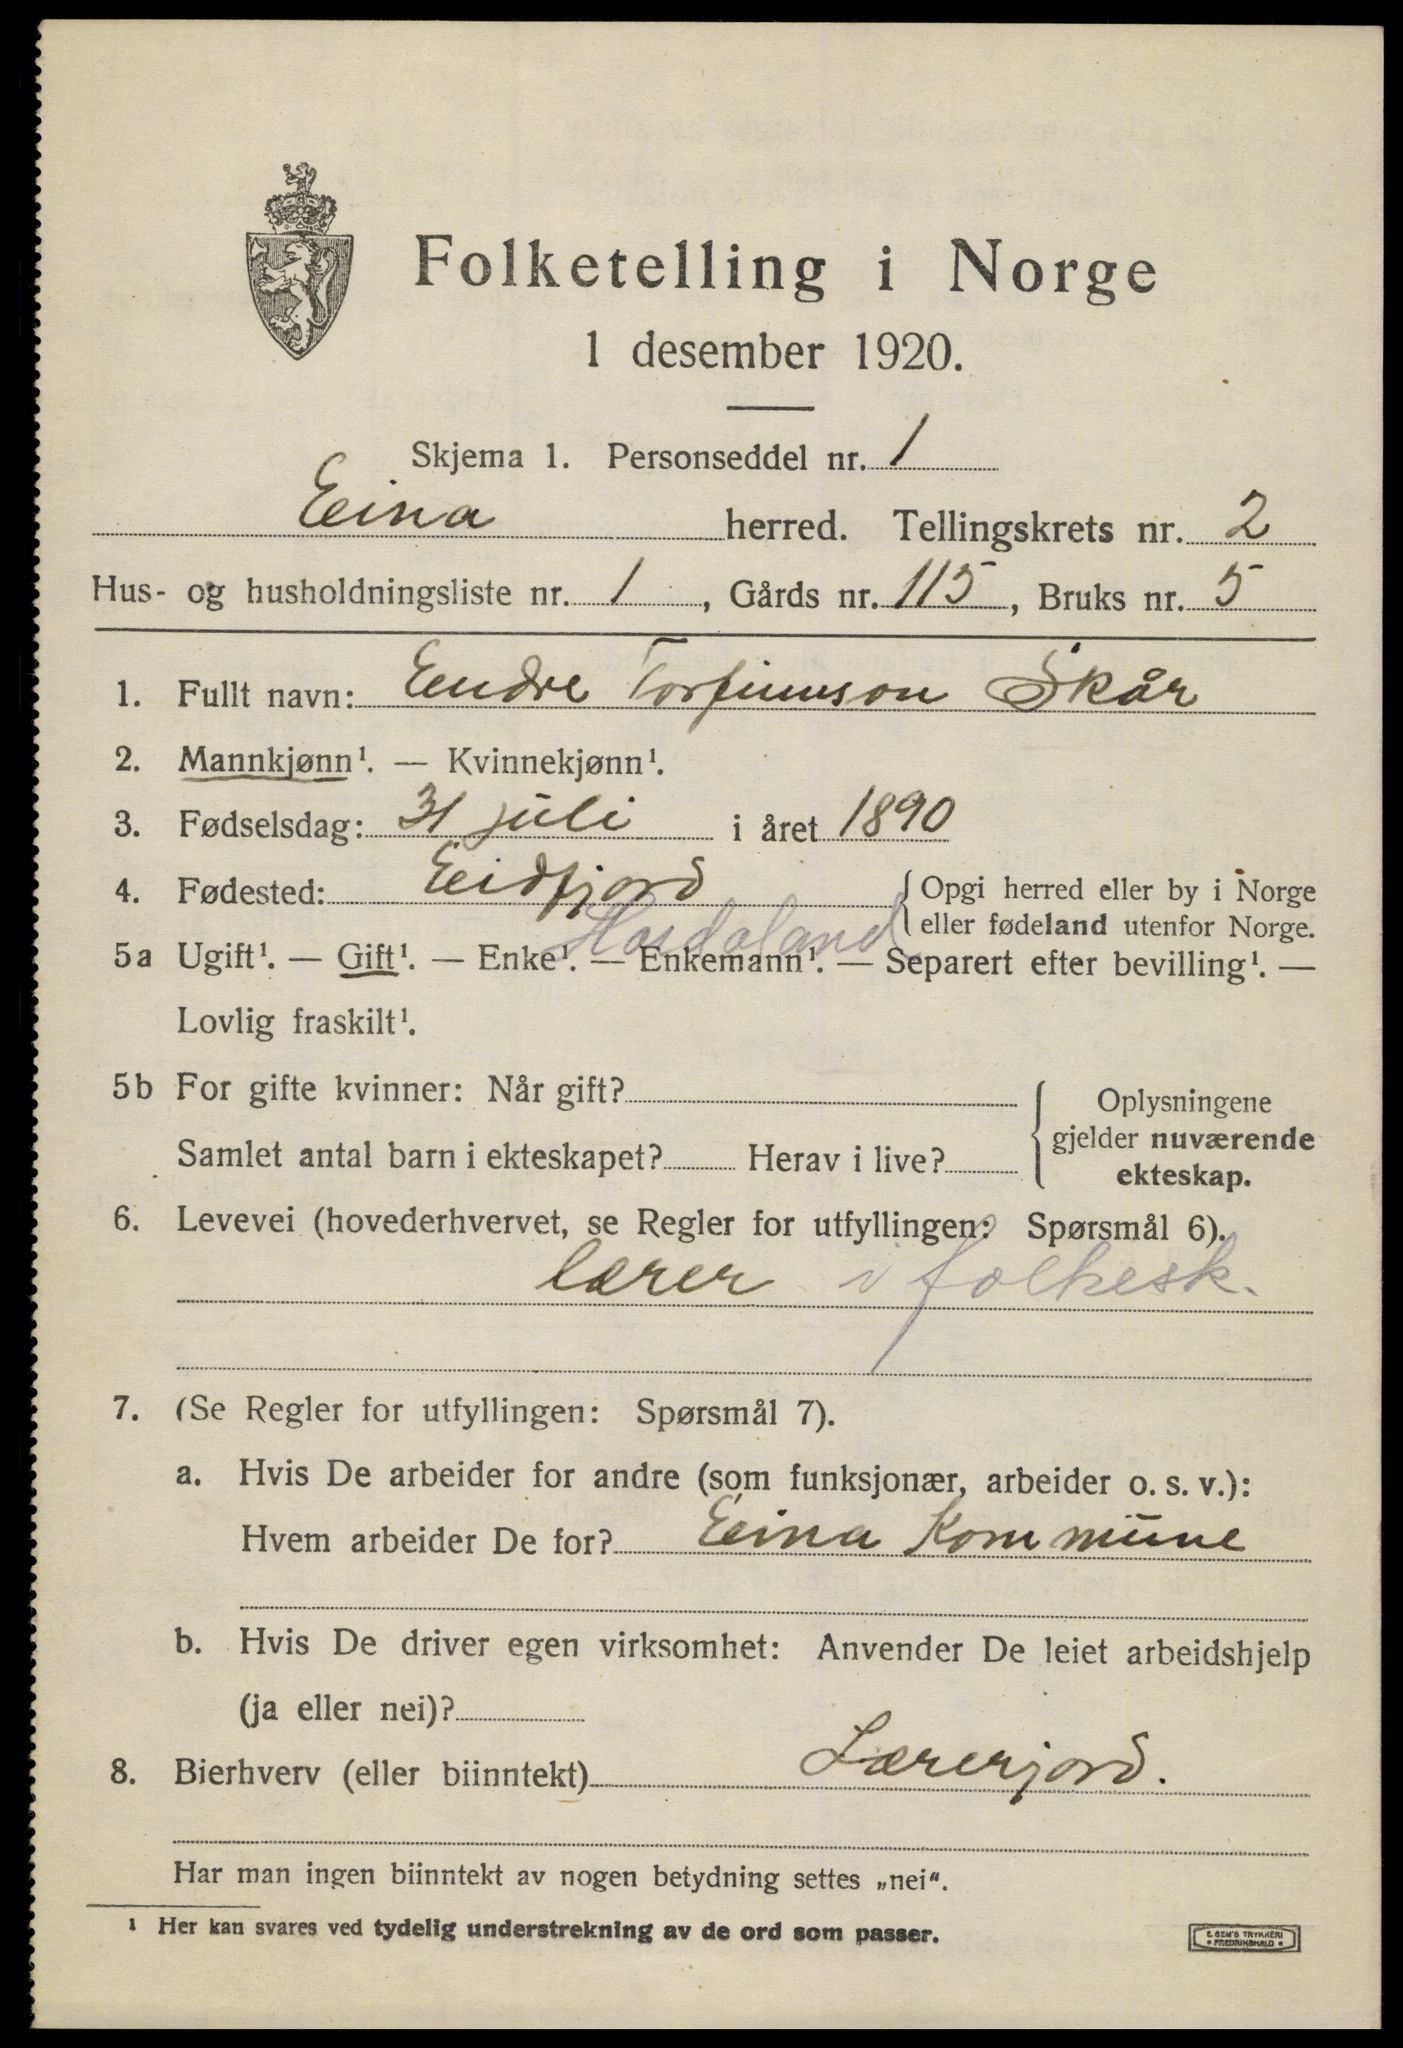 Folketelling i Norge
1 desember 1920.
Skjema 1. Personseddel nr. 1
Eina herred. Tellingskrets nr. 2
Hus- og husholdningsliste nr. 1, Gårds nr. 115, Bruks nr. 5
1. Fullt navn: Endre Torfinnson Skår
2. Mannkjønn¹. — Kvinnekjønn¹.
3. Fødselsdag: 31 juli i året 1890
4. Fødested: Eidfjord { Opgi herred eller by i Norge
eller fødeland utenfor Norge.
Hordaland
5a Ugift¹. — Gift¹. — Enke¹. — Enkemann¹. — Separert efter bevilling¹. —
Lovlig fraskilt¹.
5b For gifte kvinner: Når gift?
Samlet antal barn i ekteskapet? Herav i live?
Oplysningene
gjelder nuværende
ekteskap.
6. Levevei (hovederhvervet, se Regler for utfyllingen: Spørsmål 6).
lærer i folkesk.
7. (Se Regler for utfyllingen: Spørsmål 7).
a. Hvis De arbeider for andre (som funksjonær, arbeider o. s. v.):
Hvem arbeider De for? Eina Kommune
b. Hvis De driver egen virksomhet: Anvender De leiet arbeidshjelp
(ja eller nei)?
8. Bierhverv (eller biinntekt) Lærerjord.
Har man ingen biinntekt av nogen betydning settes „nei“.
¹ Her kan svares ved tydelig understrekning av de ord som passer.
E. SEM'S TRYKKERI
• FREDRIKSHALD •